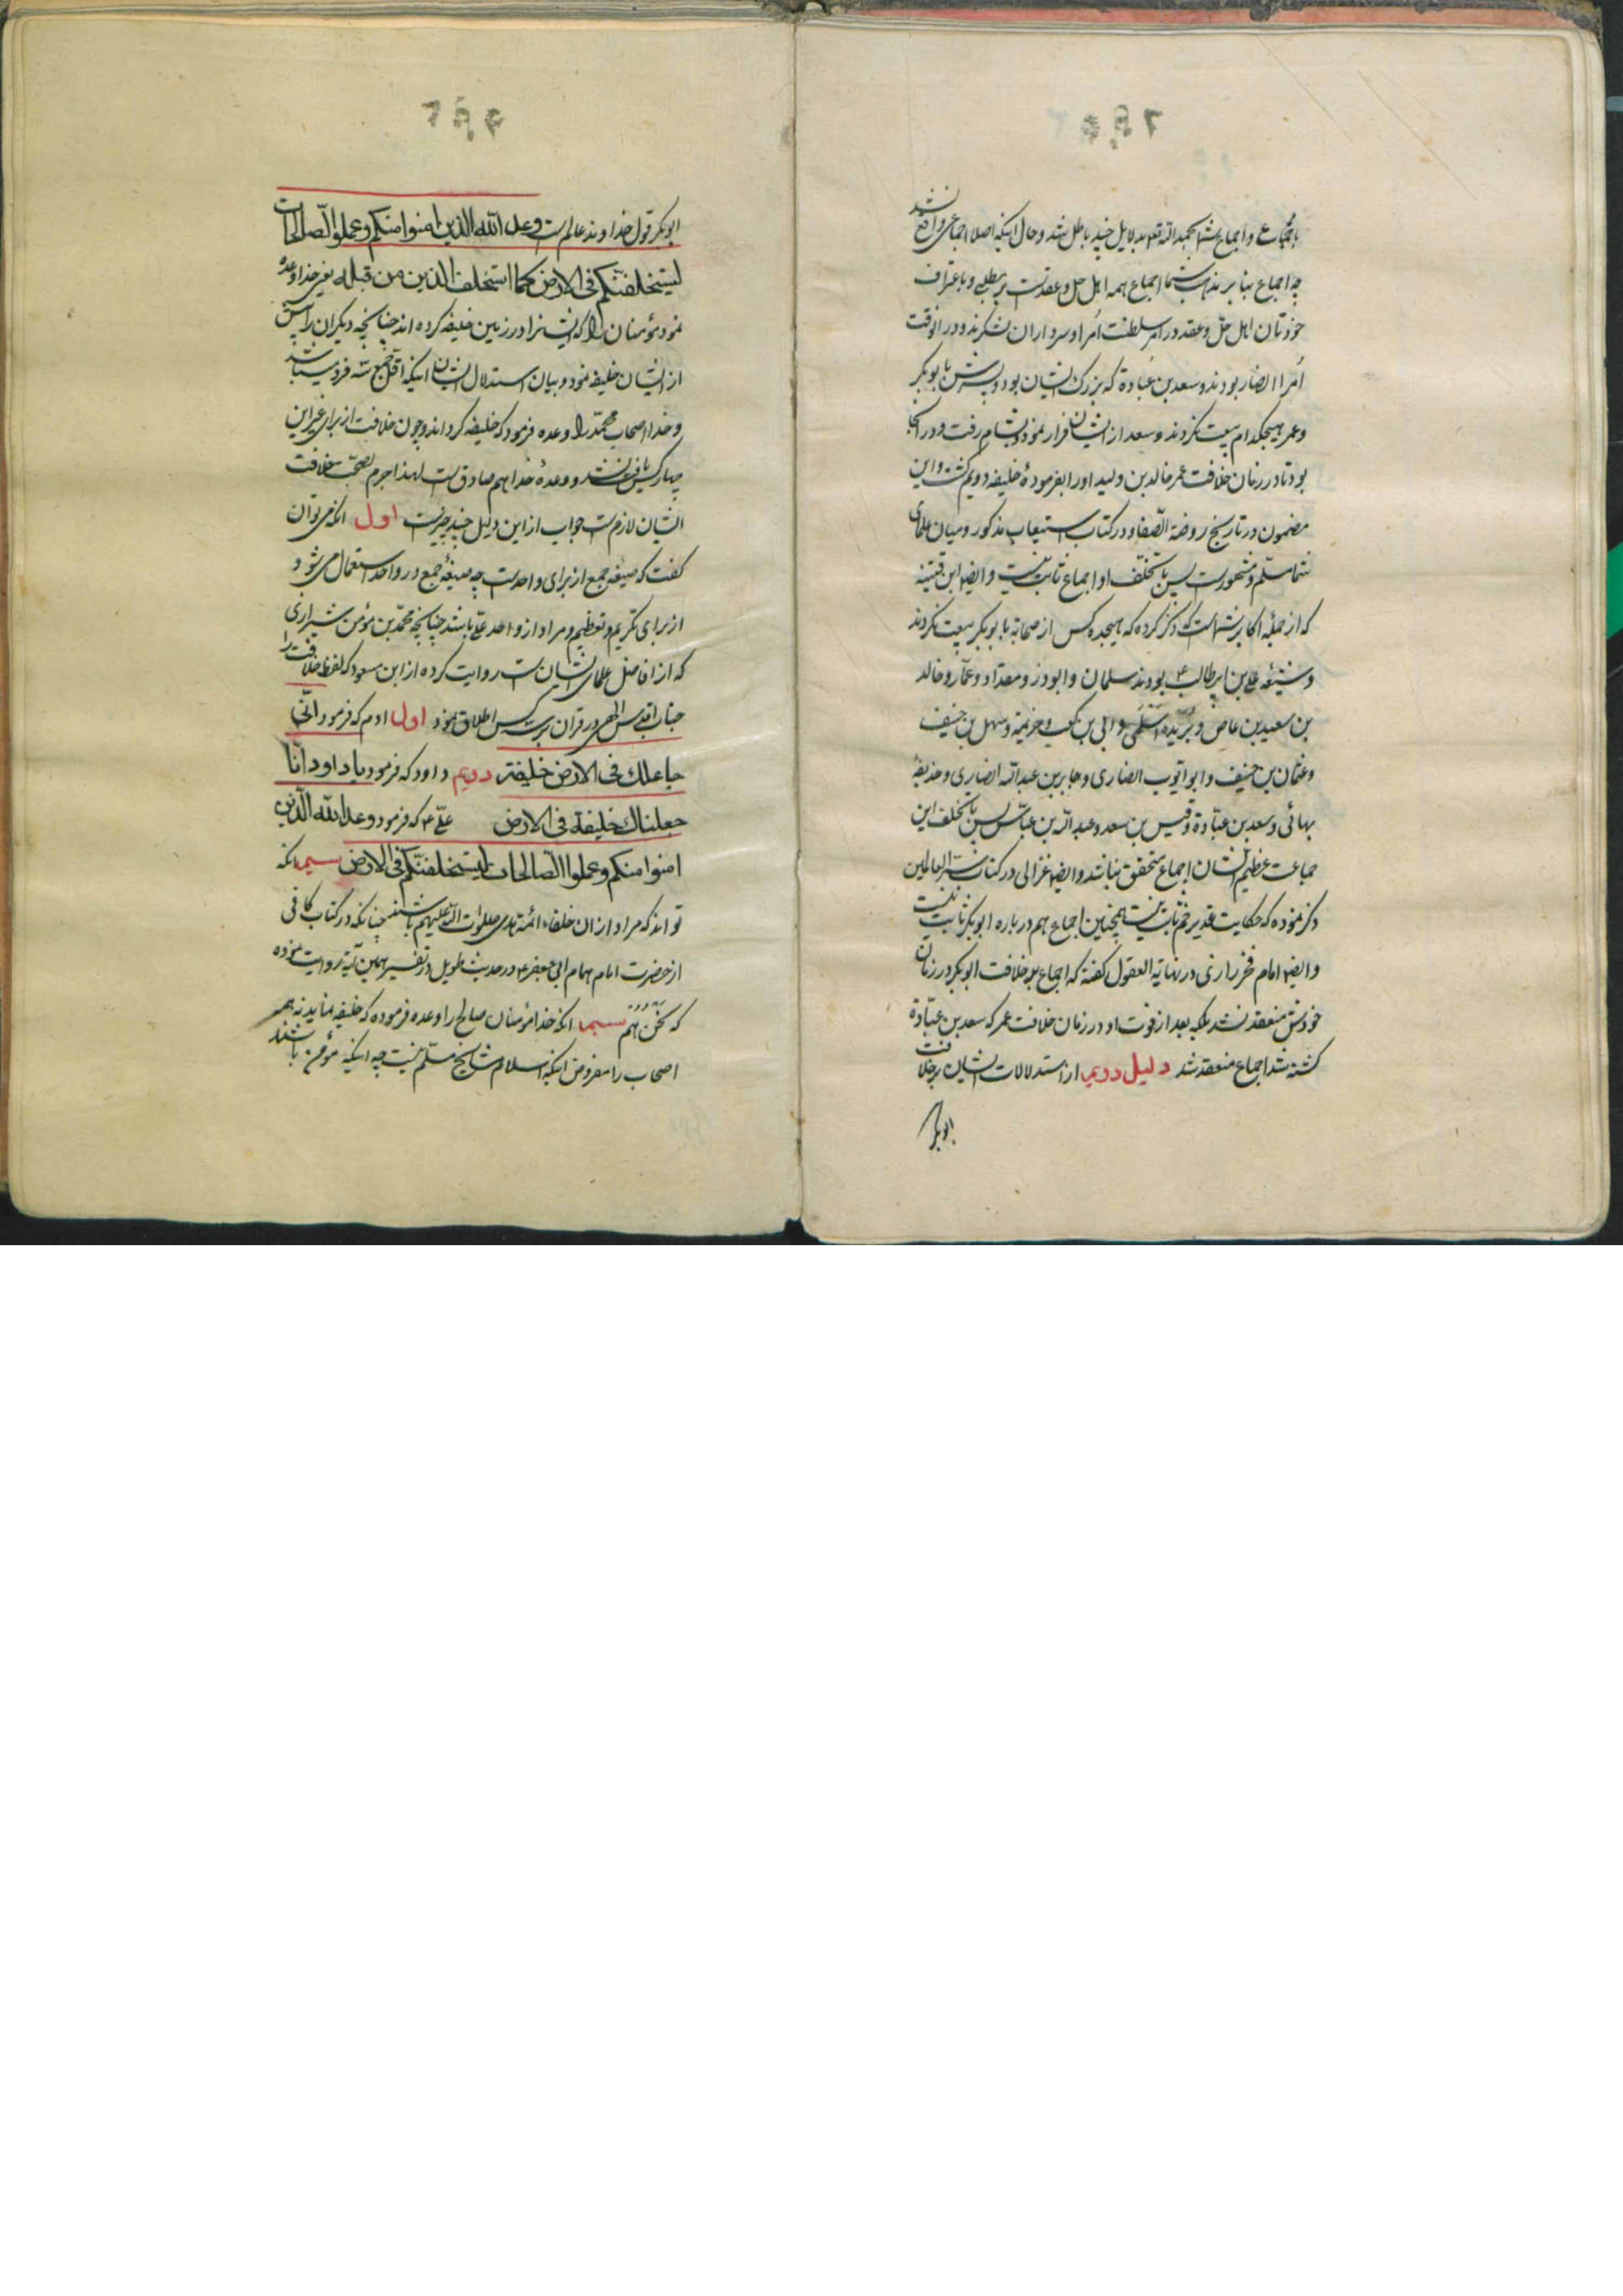 باجماع و اجماع شما بحمد الله تعه بدلایل چند باطل شد و حال اینکه اصلا اجماعی واقع نشد
چه اجماع بنابر مذهب شما اجماع همه اهل حل و عقدست بر مطلبی و باعتراف
خودتان اهل حلّ و عقد در امر سلطنت اُمرا و سرداران لشکرند و در انوقت
اُمرا انصار بودند و سعد بن عُبادة که بزرک ایشان بود و پسرش با بوبکر
و عمر بهیچکدام بیعت نکردند و سعد از ایشان فرار نمود و بشام رفت و در انجا
بود تا در زمان خلافت عمر خالد بن ولید او را بفرمودهٔ خلیفه دویم کشت و این
مضمون در تاریخ روضة الصّفا و در کتاب استیعاب مذکور و میان علمای
شما مسلّم و مشهورست پس با تخلّف او اجماع ثابت نیست و ایضا ابن قتیبه
که از جمله اکابر شماست ذکر کرده که هیجده کس از صحابه با بوبکر بیعت نکردند
و شیعه علی بن ابیطالب ع بودند سلمان و ابوذر و مقداد و عمّار و خالد
بن سعید بن عاص و بُریده اَسلمی و ابی بن کعب و خزیمة و سهل بن حنیف
و عثمان بن حنیف و ابو ایّوب انصاری و جابر بن عبدالله انصاری و حذیفهٔ
یمانی و سعد بن عبّادة و قیس بن سعد و عبدالله بن عباس پس با تخلف این
جماعت عظیم الشان اجماع متحقق نباشد و ایضا غزالی در کتاب سرّ العالمین
ذکر نموده که حکایت غدیر خم ثابت نیست همچنین اجماع هم در باره ابوبکر ثابت نیست
و ایضا امام فخر رازی در نهایة العقول کفته که اجماع بر خلافت ابوبکر در زمان
خودش منعقد نشد بلکه بعد از فوت او در زمان خلافت عمر که سعد بن عبّادة
کشته شد اجماع منعقد شد دلیل دویم از استدلالات ایشان بر خلافت
ابوبکر
ابوبکر قول خداوند عالم ست وعد الله الذین امنوا منکم وعملوا الصّالحات
لیستخلفنّکم فی الارض کما استخلف الذین من قبله یعنی خدا وعده
نمود مؤمنان را که ایشانرا در زمین خلیفه کرده اند چنانچه دیکران را پیش
از ایشان خلیفه نمود و بیان استدلال ایشان اینکه اقل جمع سه فرد میباشد
و خدا اصحاب محمّد را وعده فرمود که خلیفه کرداند و چون خلافت از برای غیر این
چهار کس یافت نشد و وعدهٔ خدا هم صادق ست لهذا جرم بصحّت خلافت
ایشان لازم ست جواب از این دلیل چند چیزست اول انکه می توان
کفت که صیغه جمع از برای واحدست چه صیغهٔ جمع در واحد استعمال می شود
از برای تکریم و تعظیم و مراد از واحد علی باشد چنانچه محمّد بن مؤمن شیرازی
که از افاضل علمای ایشان ست روایت کرده از ابن مسعود که لفظ خلافت را
جناب اقدس الهی در قران بر سه کس اطلاق نمود اول ادم که فرمود انّی
جاعلک فی الارض خلیفة دویم داود که فرمود یا داود انّا
جعلناک خلیفة فی الارض علی ع که فرمود وعد الله الّذین
امنوا منکم وعملوا الصّالحات لیستخلفنّکم فی الارض سیم انکه
تواند که مراد از ان خلفاء ائمة هدی صلوات الله علیهم باشند چنانکه در کتاب کافی
از حضرت امام همام ابی جعفر ع در حدیث طویل در تفسیر همین آیه روایت نموده
که نَحْنُ هُم سیم انکه خدا مؤمنان صالح را وعده فرموده که خلیفه نماید نه همه
اصحاب را مفروض اینکه اسلام مشایخ مسلّم نیست چه اینکه مؤمن باشند